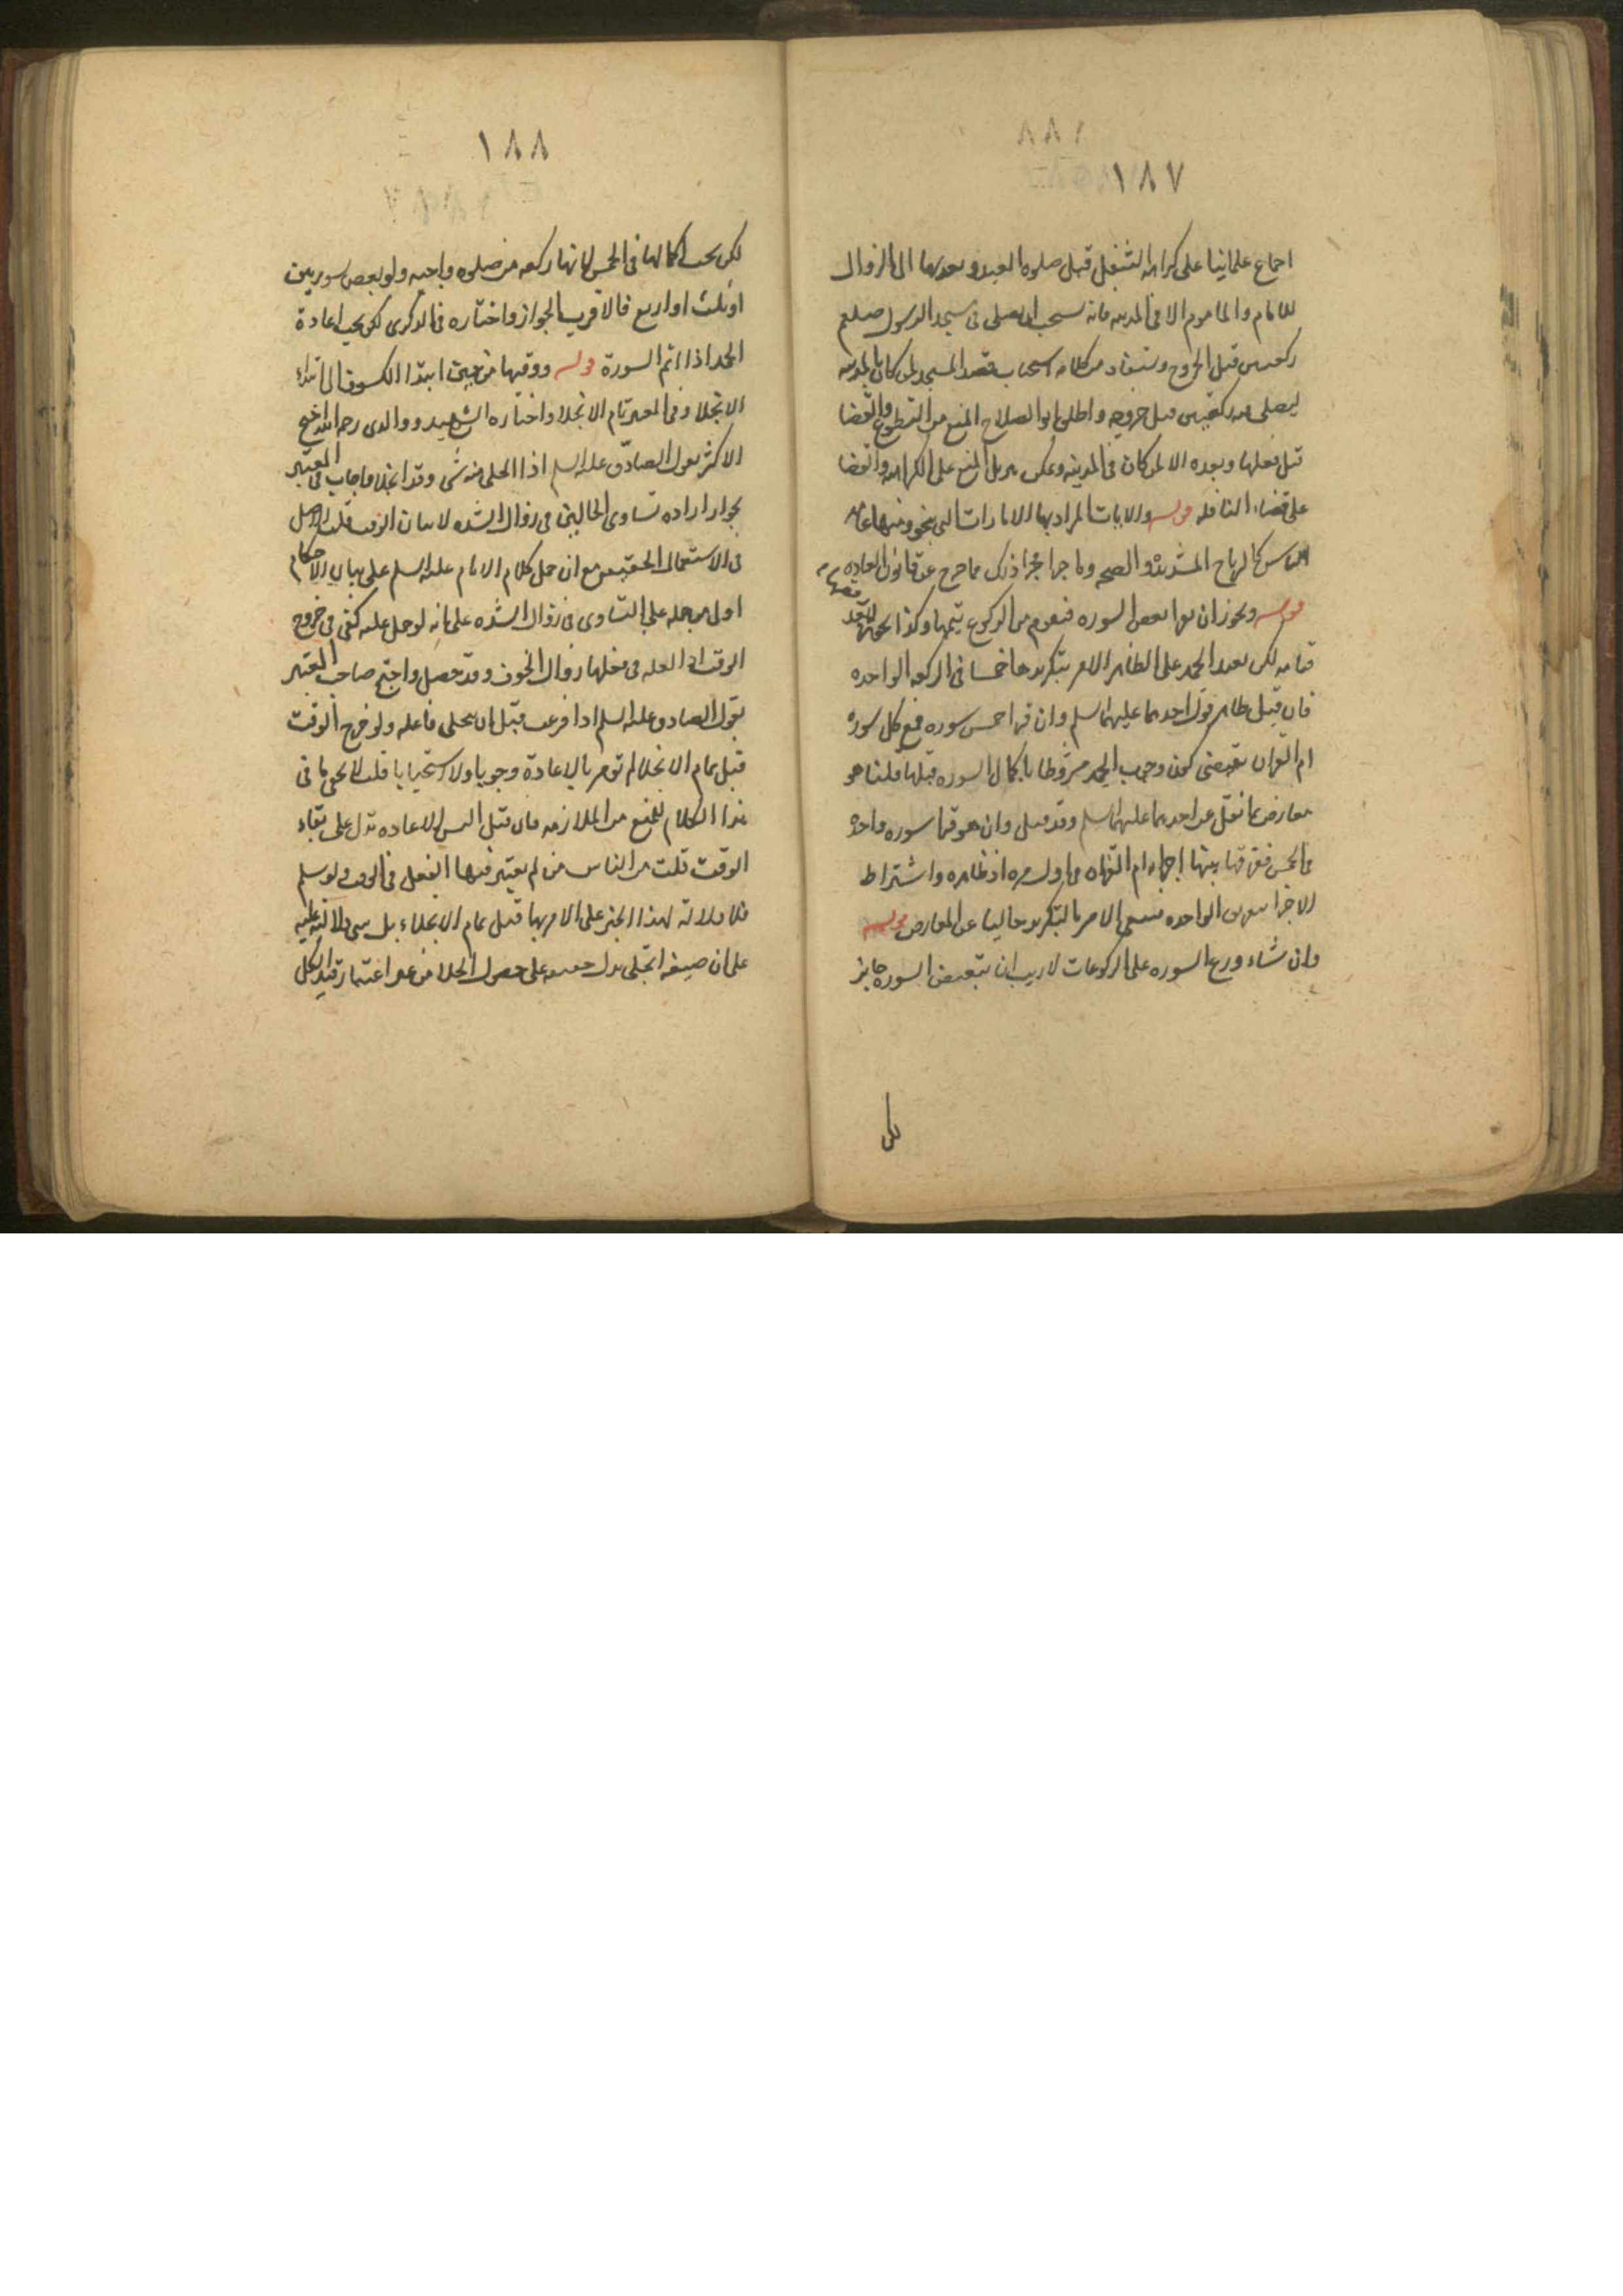 ١٨٧
اجماع علمائنا على كراهه التنفل قبل صلوه العيد وبعدها الى الزوال
للامام والماموم الا فى المدينه فانه يستحب ان يصلى فى مسجد الرسول صلعم
ركعتين قبل الخروج ويستفاد من كلامه استحباب قصد المسجد لمن كان بالمدينه
ليصلى فيه ركعتين قبل خروجه واطلق ابو الصلاح المنع من التطوع والقضا
قبل فعلها وبعده الا لمن كان فى المدينه ويمكن تنزيل المنع على الكراهه والقضا
على قضاء النافله قوله والايات المراد بها الامارات التى يخوف منها عامه
الناس كالرياح المشتدة والصيحه وما جرا مجرا ذلك مما خرج عن قانون العاده
قوله ويجوز ان يقرا بعض السوره فيقوم من الركوع يتمها وكذا
قيامه لكن يعيد الحمد على الظاهر الامر بتكريرها خمسا فى الركعه الواحده
فان قيل ظاهر قول احدهما عليهما السلم وان قرا خمس سوره فمع كل سوره
ام القران يقتضى كون وجوب الحمد مشروطا باكمال السوره قبلها قلنا هو
معارض بما نقل عن احدهما عليهما السلم وقد قيل وان هو قرا سوره واحده
فى الخمس ففرقها بينها اجزاه ام القران فى اول مره اذ ظاهره واشتراط
الاجزا الواحده فيبقى الامر بالتكرير خاليا عن المعارض قوله
وان شاء وزع السوره على الركوعات لا ريب ان تبعيض السوره جايز
لكن
١٨٨
لكن يجب اكمالها فى الخمس لانها ركعه من صلوه واجبه ولو بعض سورتين
او ثلث او اربع فالاقرب الجواز واختاره فى الذكرى لكن يجب اعادة
الحمد اذا اتم السورة قوله ووقتها من حين ابتدا الكسوف الى ابتداء
الانجلا وفى المعتبر تمام الانجلا واختاره الشهيد ووالدى رحمه الله احتج
الاكثر بقول الصادق عليه السلم اذا انجلى منه شى وقد انجلا واجاب فى المعتبر
بجواز اراده تساوى الحالين فى زوال الشده لا بيان الوقت قلت الاصل
فى الاستعمال الحقيقه مع ان حمل كلام الامام عليه السلم على بيان الاحكام
اولى من حمله على التساوى فى زوال الشده على انه لو حمل عليه كفى فى خروج
الوقت اذ العله فى فعلها زوال الخوف وقد حصل واحتج صاحب المعتبر
بقول الصادق عليه السلم اذا فرغت قبل ان ينجلى فاعده ولو خرج الوقت
قبل تمام الانجلا لم تومر بالاعادة وجوبا ولا استحبابا قلت لا يخفى ما فى
هذا الكلام للمنع من الملازمه فان قيل اليس الاعاده تدل على بقاء
الوقت قلت من الناس من لم يعتبر فيها الفعل فى الوقت ولو سلم
فلا دلالة لهذا الخبر على الامر بها قبل تمام الانجلاء بل دلالته عليه
على ان صيغه انجلى تدل على حصول الجلا من غير اعتبار قيد الكل